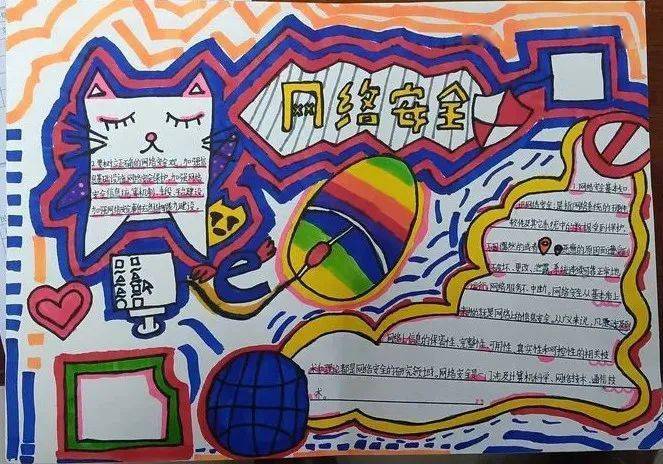 网络安全
2.要树立正确的网络安全观,加强信
息基础设施网络安全保护,加强网络
安全信息
1.网络安全基本知
网络安全,是指网络系统的硬件
软件及其系统中
受到保护,
不因偶然的或者恶意的原因而遭受
破坏、更改、泄露,系统连续可靠正常地
网络服务不中断,网络安全从其本质上
来讲就是网络上的信息安全,从广义来说,凡是涉及到
网络上信息的保密性、完整性、可用性、真实性和可控性的相关技
术和理论都是网络安全的研究领域。网络安全是一门涉及计算机科学、网络技术、通信技
术。
e